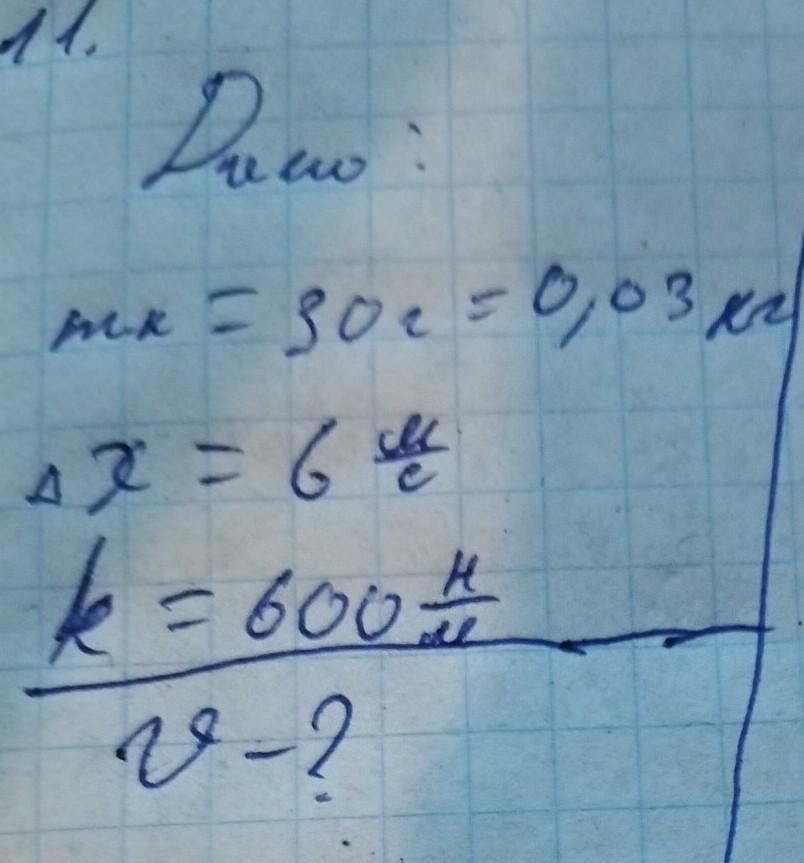 11.
Дано:
mк = 30г = 0,03 кг
Δx = 6 м/с
k = 600 Н/м
v - ?